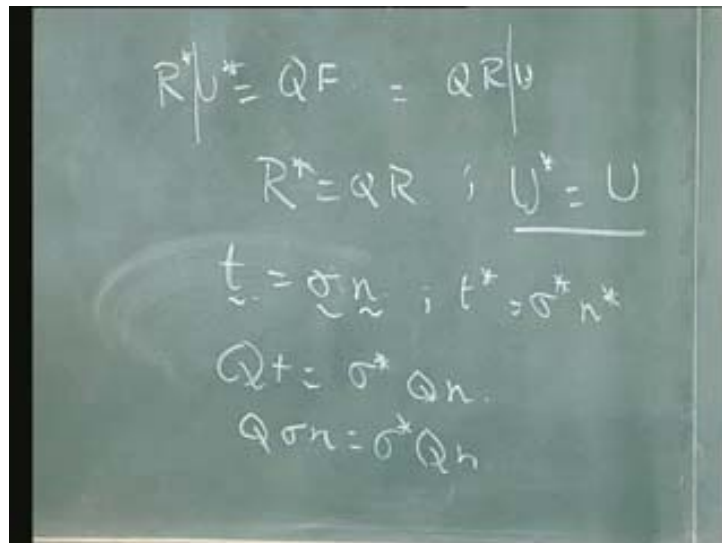 R*|U* = QF = QR|U
R* = QR ; U* = U
t = σ n ; t* = σ* n*
Qt = σ* Qn.
Qσn = σ* Qn